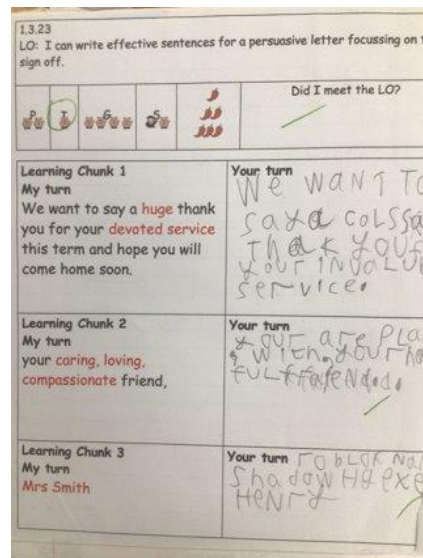 1.3.23
LO: I can write effective sentences for a persuasive letter focussing on
sign off.
P
I
G
S
Did I meet the LO?
Learning Chunk 1
My turn
We want to say a huge thank
you for your devoted service
this term and hope you will
come home soon.
Your turn
We WANT TO
say a
THak YOU
YOUR
service.
Learning Chunk 2
My turn
your caring, loving,
compassionate friend,
Your turn
your are
WITH YOUR
Learning Chunk 3
My turn
Mrs Smith
Your turn
Shadow
HENry